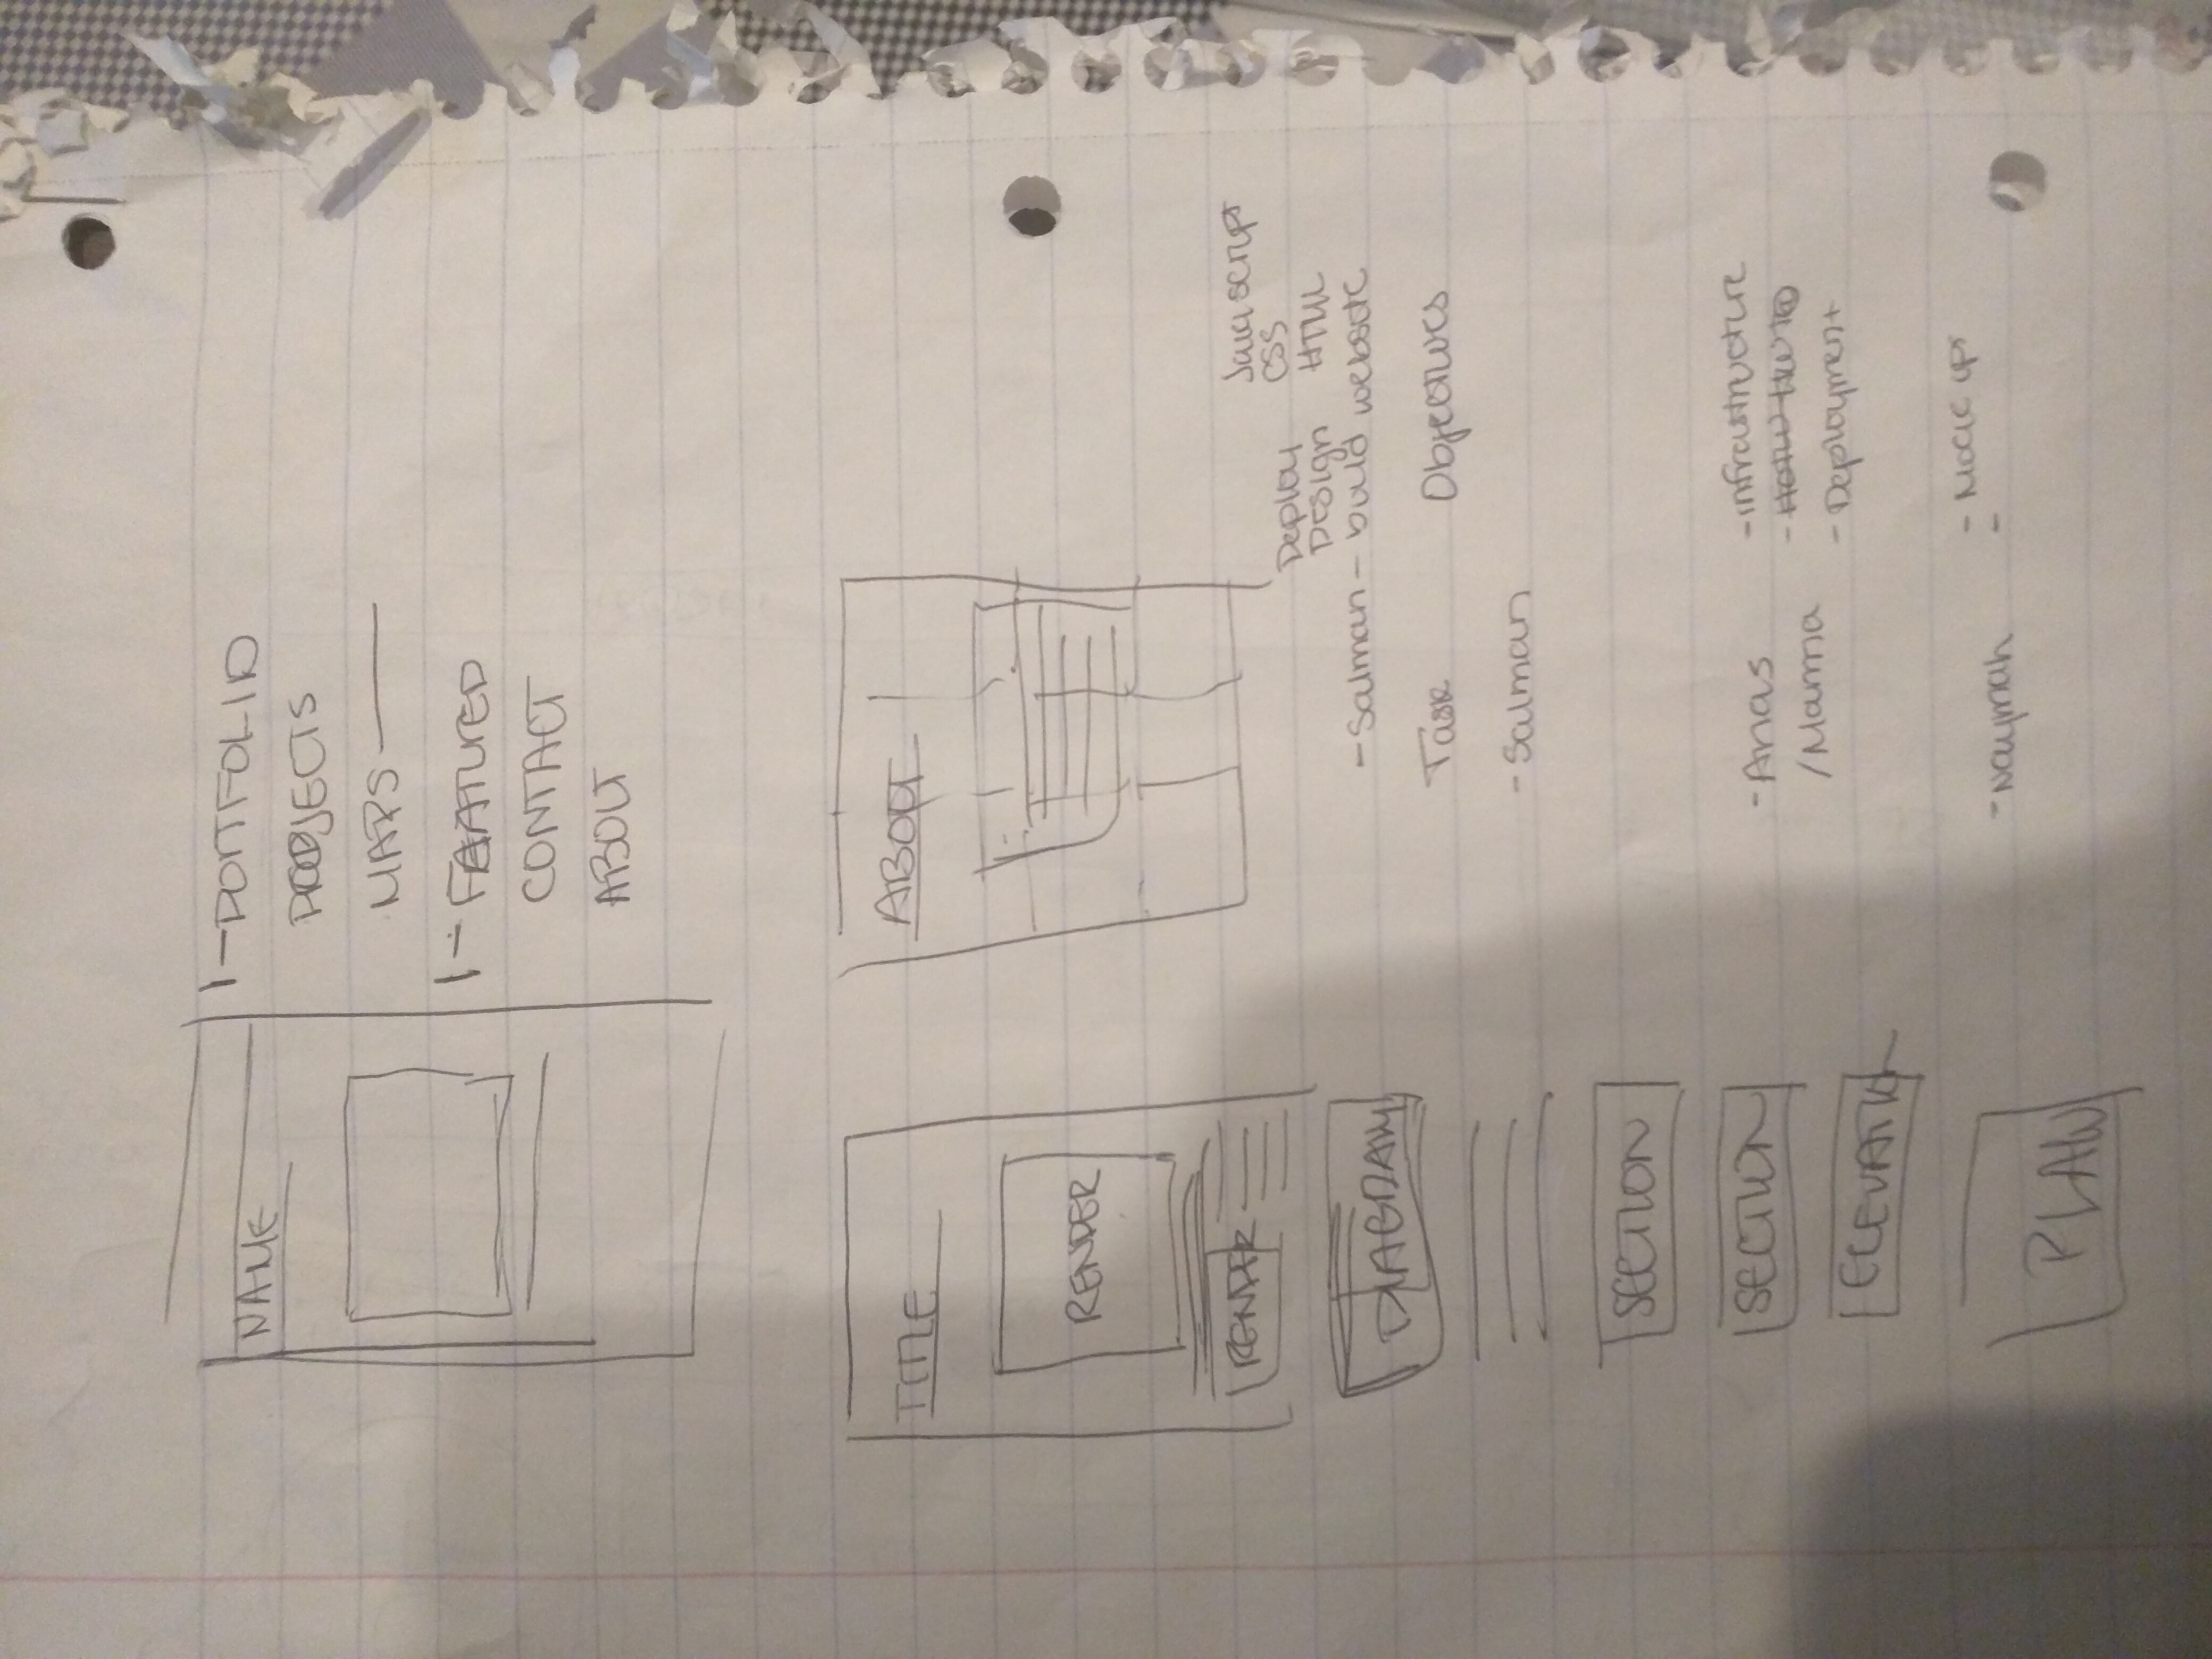 NAME
1-PORTFOLIO
PROJECTS
MAPS
1- FEATURED
CONTACT
ABOUT
TITLE
RENDER
RENDER
DIAGRAM
SECTION
SECTION
ELEVATION
PLAN
ABOUT
Javascript
Deploy CSS
Design HTML
-Salman - build website
Task Objectives
-Salman
-Anas -infrastructure
/Marma
-Deployment
-Naymah - Mock ups
-